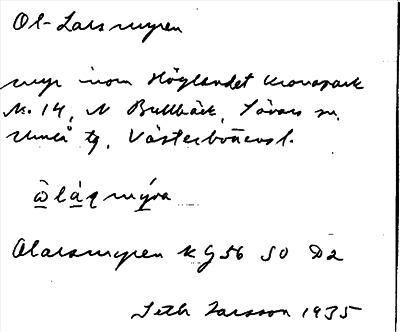 Ol-Larsmyren
myr inom Höglandet kronopark
Nr. 14, N Bullbäck, Sävars sn,
Umeå tg, Västerbottens l.
Olarsmyren kg 56 SO D2
Seth Larsson 1935